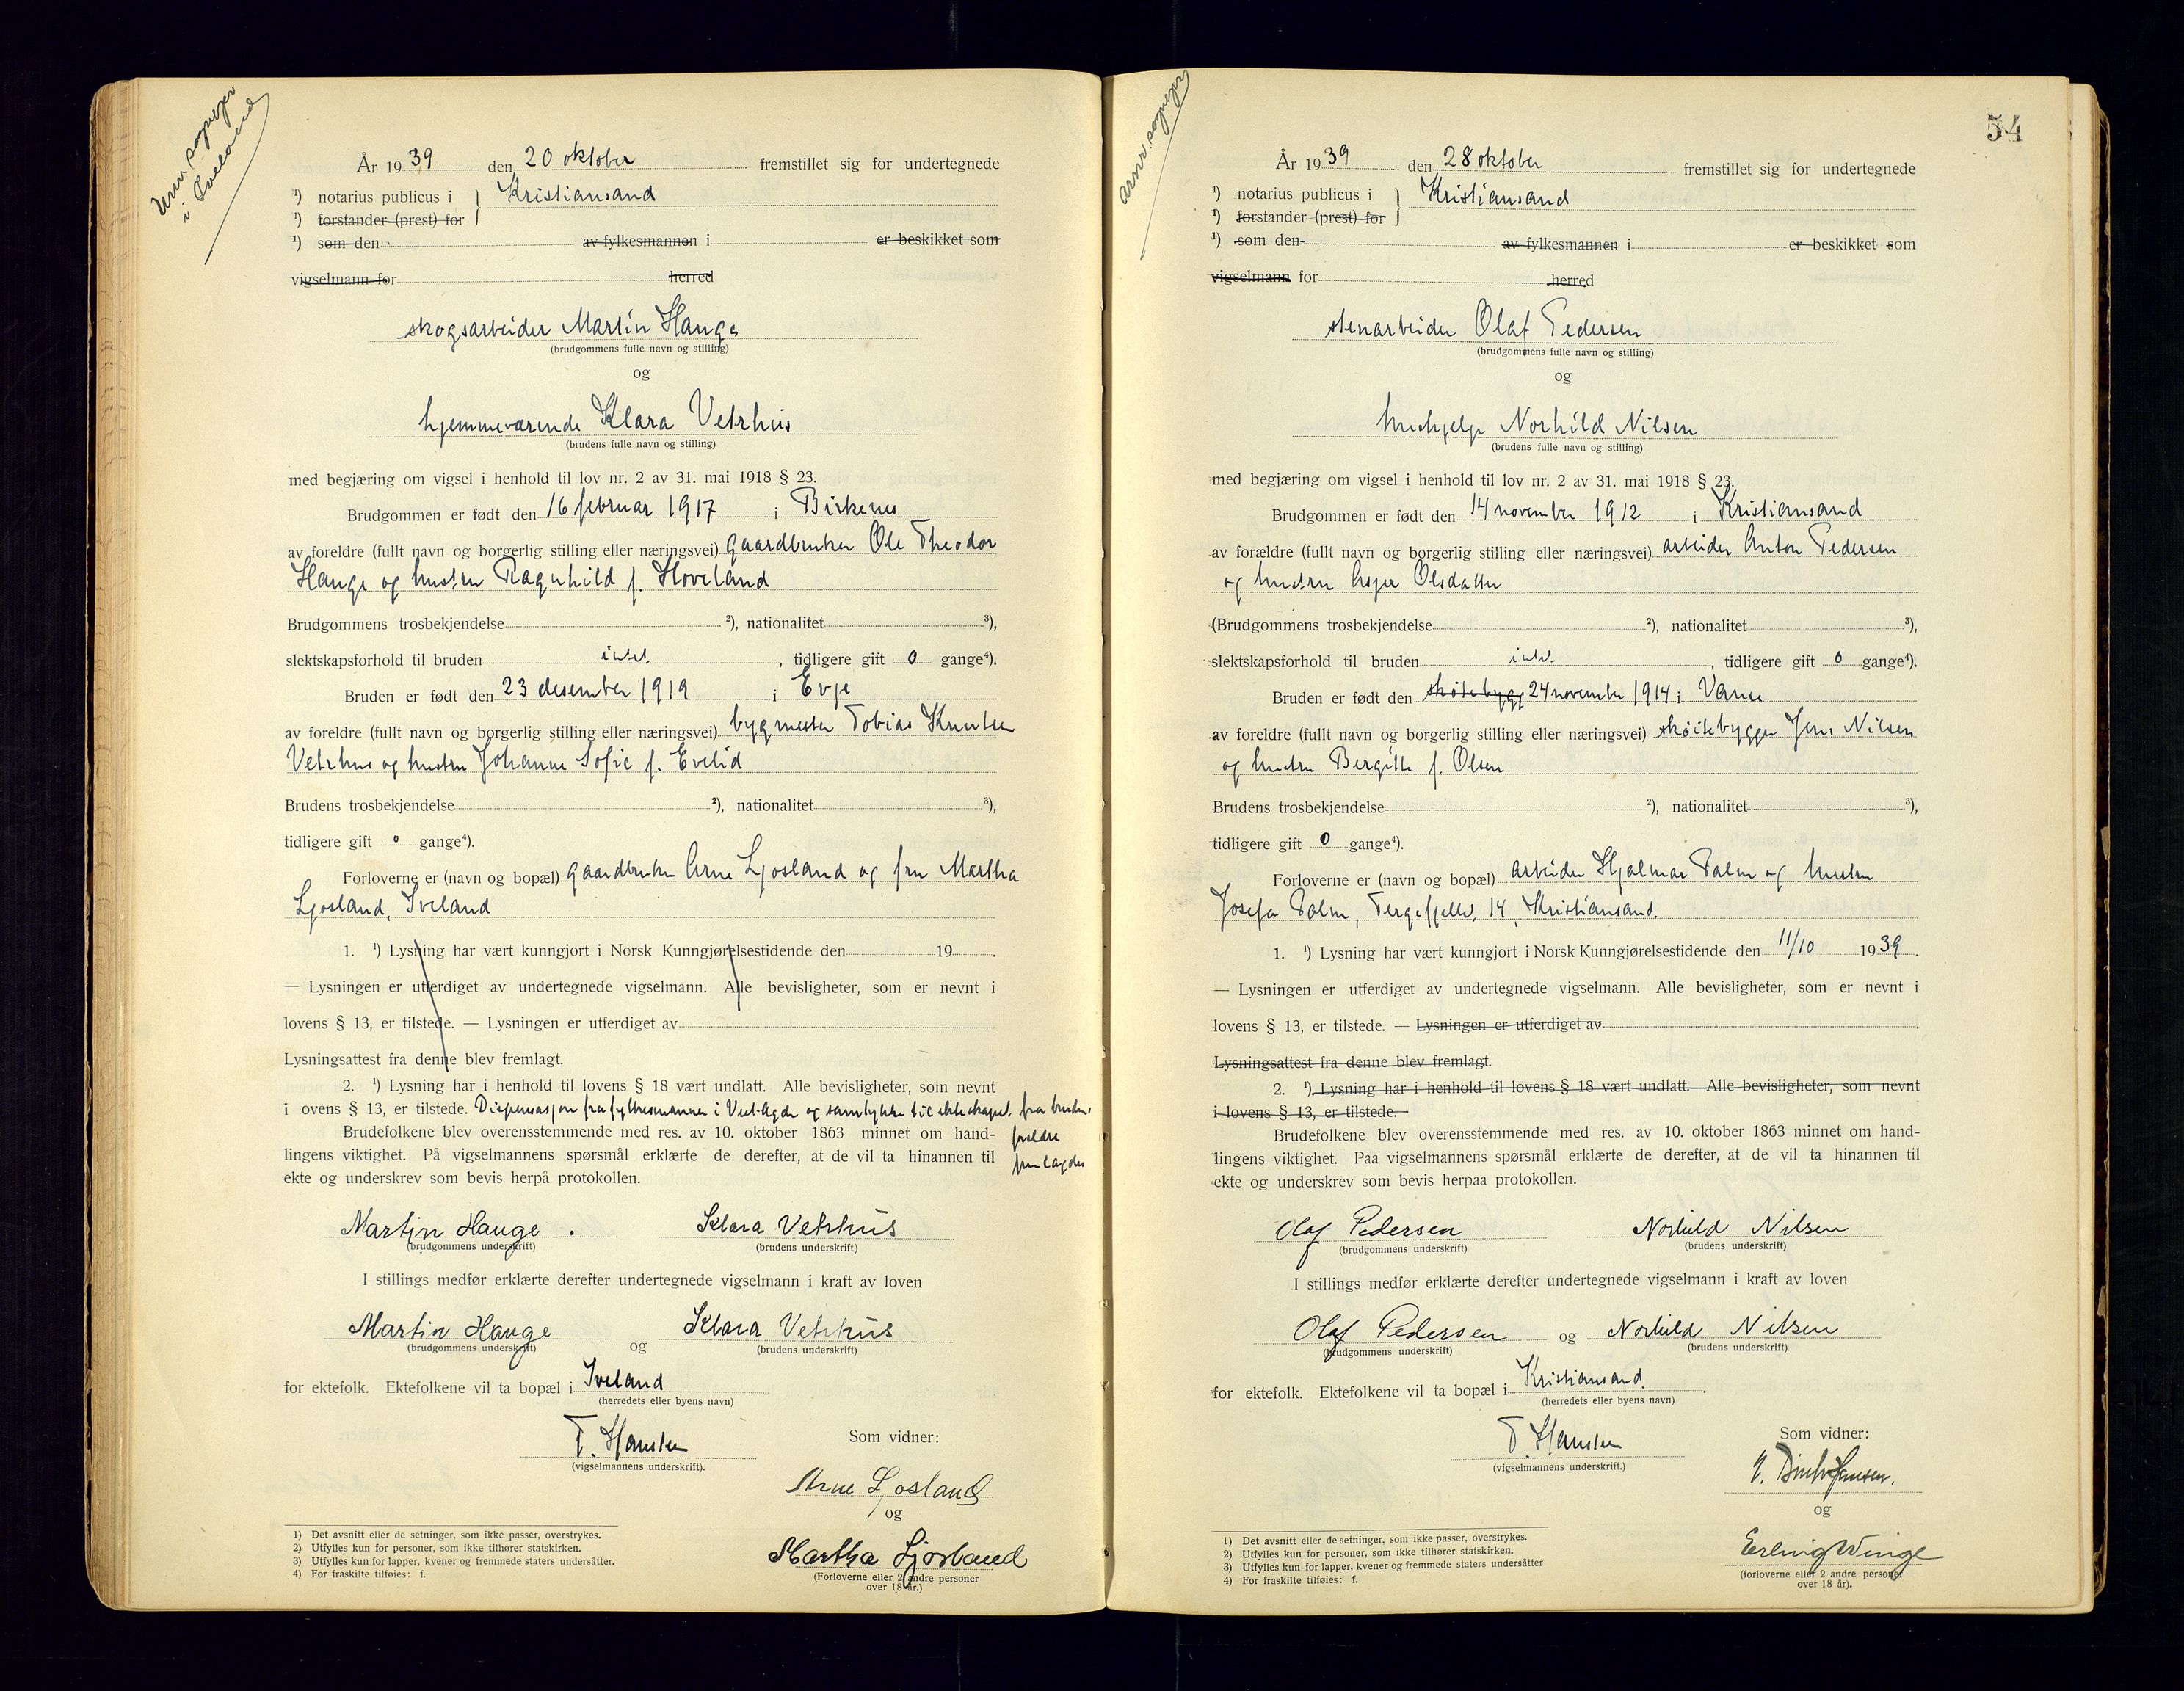 Unv. sogneprest
i Iveland
År 1939 den 20 oktober fremstillet sig for undertegnede
¹) notarius publicus i } Kristiansand
¹) forstander (prest) for
¹) som den av fylkesmannen i er beskikket som
vigselmann for herred
skogsarbeider Martin Hauge
(brudgommens fulle navn og stilling)
og
hjemmeværende Klara Vetrhus
(brudens fulle navn og stilling)
med begjæring om vigsel i henhold til lov nr. 2 av 31. mai 1918 § 23.
Brudgommen er født den 16 februar 1917 i Birkenes
av foreldre (fullt navn og borgerlig stilling eller næringsvei) gaardbruker Ole Theodor
Hauge og hustru Ragnhild f. Hoveland
Brudgommens trosbekjendelse ²), nationalitet ³),
slektskapsforhold til bruden intet, tidligere gift 0 gange⁴).
Bruden er født den 23 desember 1919 i Evje
av foreldre (fullt navn og borgerlig stilling eller næringsvei) bygmester Tobias Knutsen
Vetrhus og hustru Johanne Sofie f. Evelid
Brudens trosbekjendelse ²), nationalitet ³),
tidligere gift 0 gange⁴).
Forloverne er (navn og bopæl) gaardbruker Arne Ljosland og fru Martha
Ljosland, Iveland
1. ¹) Lysning har vært kunngjort i Norsk Kunngjørelsestidende den 19 .
— Lysningen er utferdiget av undertegnede vigselmann. Alle bevisligheter, som er nevnt i
lovens § 13, er tilstede. — Lysningen er utferdiget av
Lysningsattest fra denne blev fremlagt.
2. ¹) Lysning har i henhold til lovens § 18 vært undlatt. Alle bevisligheter, som nevnt
i ovens § 13, er tilstede. Dispensasjon fra fylkesmannen i Vest-Agder og samtykke til ekteskapet fra brudens
foreldre
fremlagdes
Brudefolkene blev overensstemmende med res. av 10. oktober 1863 minnet om hand-
lingens viktighet. På vigselmannens spørsmål erklærte de derefter, at de vil ta hinannen til
ekte og underskrev som bevis herpå protokollen.
Martin Hauge. Klara Vetrhus
(brudgommens underskrift) (brudens underskrift)
I stillings medfør erklærte derefter undertegnede vigselmann i kraft av loven
Martin Hauge og Klara Vetrhus
(brudgommens underskrift) (brudens underskrift)
for ektefolk. Ektefolkene vil ta bopæl i Iveland
(herredets eller byens navn)
T. Hansen
(vigselmannens underskrift).
Som vidner:
Arne Ljosland
og
Martha Ljosland
(Forloverne eller 2 andre personer
over 18 år.)
1) Det avsnitt eller de setninger, som ikke passer, overstrykes.
2) Utfylles kun for personer, som ikke tilhører statskirken.
3) Utfylles kun for lapper, kvener og fremmede staters undersåtter.
4) For fraskilte tilføies: f.
54
sogneprest
År 1939 den 28 oktober fremstillet sig for undertegnede
¹) notarius publicus i } Kristiansand
¹) forstander (prest) for
¹) som den av fylkesmannen i er beskikket som
vigselmann for herred
stenarbeider Olaf Pedersen
(brudgommens fulle navn og stilling)
og
hushjelp Norhild Nilsen
(brudens fulle navn og stilling)
med begjæring om vigsel i henhold til lov nr. 2 av 31. mai 1918 § 23.
Brudgommen er født den 14 november 1912 i Kristiansand
av forældre (fullt navn og borgerlig stilling eller næringsvei) arbeider Anton Pedersen
og hustru Olsdatter
(Brudgommens trosbekjendelse ²), nationalitet ³),
slektskapsforhold til bruden intet, tidligere gift 0 gange⁴).
Bruden er født den skøitebygg 24 november 1914 i Vanse
av foreldre (fullt navn og borgerlig stilling eller næringsvei) skøitebygger Jens Nilsen
og hustru Bergitte f. Olsen
Brudens trosbekjendelse ²), nationalitet ³),
tidligere gift 0 gange⁴).
Forloverne er (navn og bopæl) arbeider Hjalmar Palm og hustru
Josefa Palm, Fergefjellv. 14, Kristiansand.
1. ¹) Lysning har vært kunngjort i Norsk Kunngjørelsestidende den 11/10 1939.
— Lysningen er utferdiget av undertegnede vigselmann. Alle bevisligheter, som er nevnt i
lovens § 13, er tilstede. — Lysningen er utferdiget av .
Lysningsattest fra denne blev fremlagt.
2. ¹) Lysning har i henhold til lovens § 18 vært undlatt. Alle bevisligheter, som nevnt
i lovens § 13, er tilstede.
Brudefolkene blev overensstemmende med res. av 10. oktober 1863 minnet om hand-
lingens viktighet. Paa vigselmannens spørsmål erklærte de derefter, at de vil ta hinannen til
ekte og underskrev som bevis herpaa protokollen.
Olaf Pedersen Norhild Nilsen
(brudgommens underskrift) (brudens underskrift)
I stillings medfør erklærte derefter undertegnede vigselmann i kraft av loven
Olaf Pedersen og Norhild Nilsen
(brudgommens underskrift) (brudens underskrift)
for ektefolk. Ektefolkene vil ta bopæl i Kristiansand.
(herredets eller byens navn)
T. Hansen
(vigselmannens underskrift.)
Som vidner:
Hansen.
og
Erling Winge
(forloverne eller 2 andre personer
over 18 år).
1) Det avsnitt eller de setninger, som ikke passer, overstrykes.
2) Utfylles kun for personer, som ikke tilhører statskirken.
3) Utfylles kun for lapper, kvener og fremmede staters undersåtter
4) For fraskilte tilføies: f.